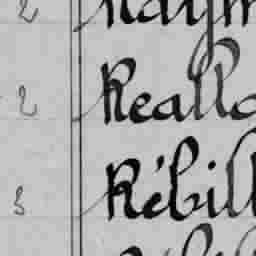 2 Raym
2 Reallo
3 Rébill